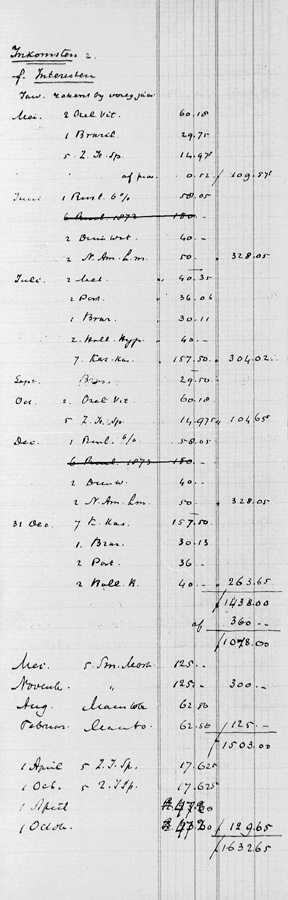 Inkomsten 2.
f. Interesten
Mei. 2 Oul Vit. 60.18
1 Brazil. 29.75
5 Z. It. Sp. 14.975
af pro. 0.52 / 109.575
Juni 1 Rusl. 6% 58.05
6 Rusl. 1873 180.-
2 40.-
2 N. Am. Lm. 50. " 328.05
Juli. 2 Met. " 40.35
2 Port. " 36.06
1 Braz. " 30.11
2. Holl. Hyp. " 40.-
7 Kas. Kas. " 157.50 " 304.02
Sept. Braz. 29.50
Oct. 2. Oul Vit 60.18
5 Z. It. Sp. 14.975 " 104.65
Dec. 1 Rusl. 6% 58.05
6 Rusl. 1873 180.-
2 40.-
2 N. Am. Lm. 50 " 328.05
31 Dec. 7 K. Kas. 157.50
1. Braz. 30.13
2 Port. 36 --
2 Holl. H. 40 -- " 263.65
/ 1438.00
af 360.--
/ 1078.00
Mei. 5 125.--
Novemb. " 125.-- 300.--
Aug. 62.50
Februari 62.50 / 125.--
/ 1503.00
1 April 5 Z. I. Sp. 17.625
1 Oct. 5 Z I Sp. 17.625
1 April
1 Octob. / 129.65
/ 1632.65